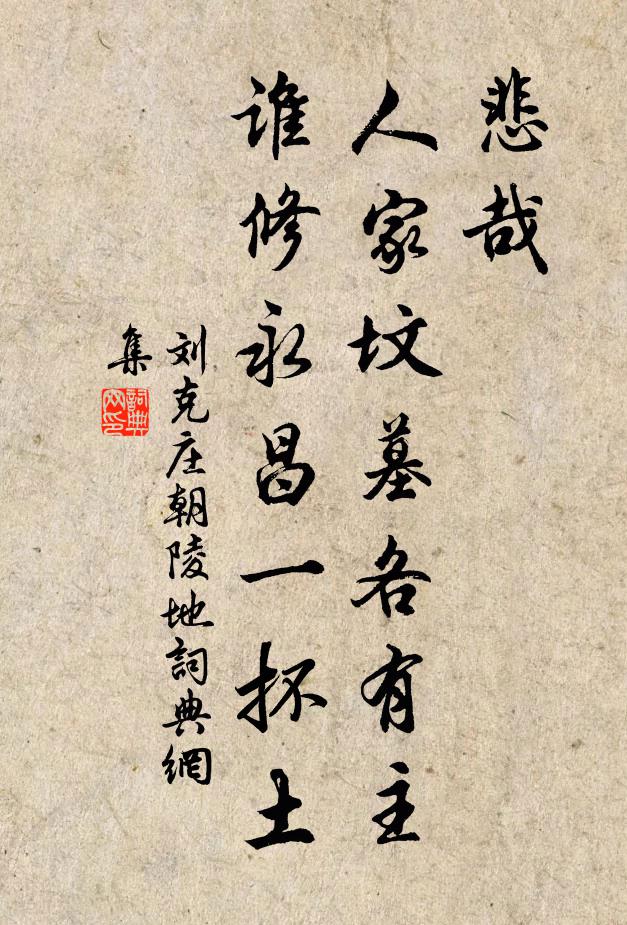 悲哉
人家坟墓各有主
谁修永昌一抔土
刘克庄朝陵地詞典網
集
詞典网印